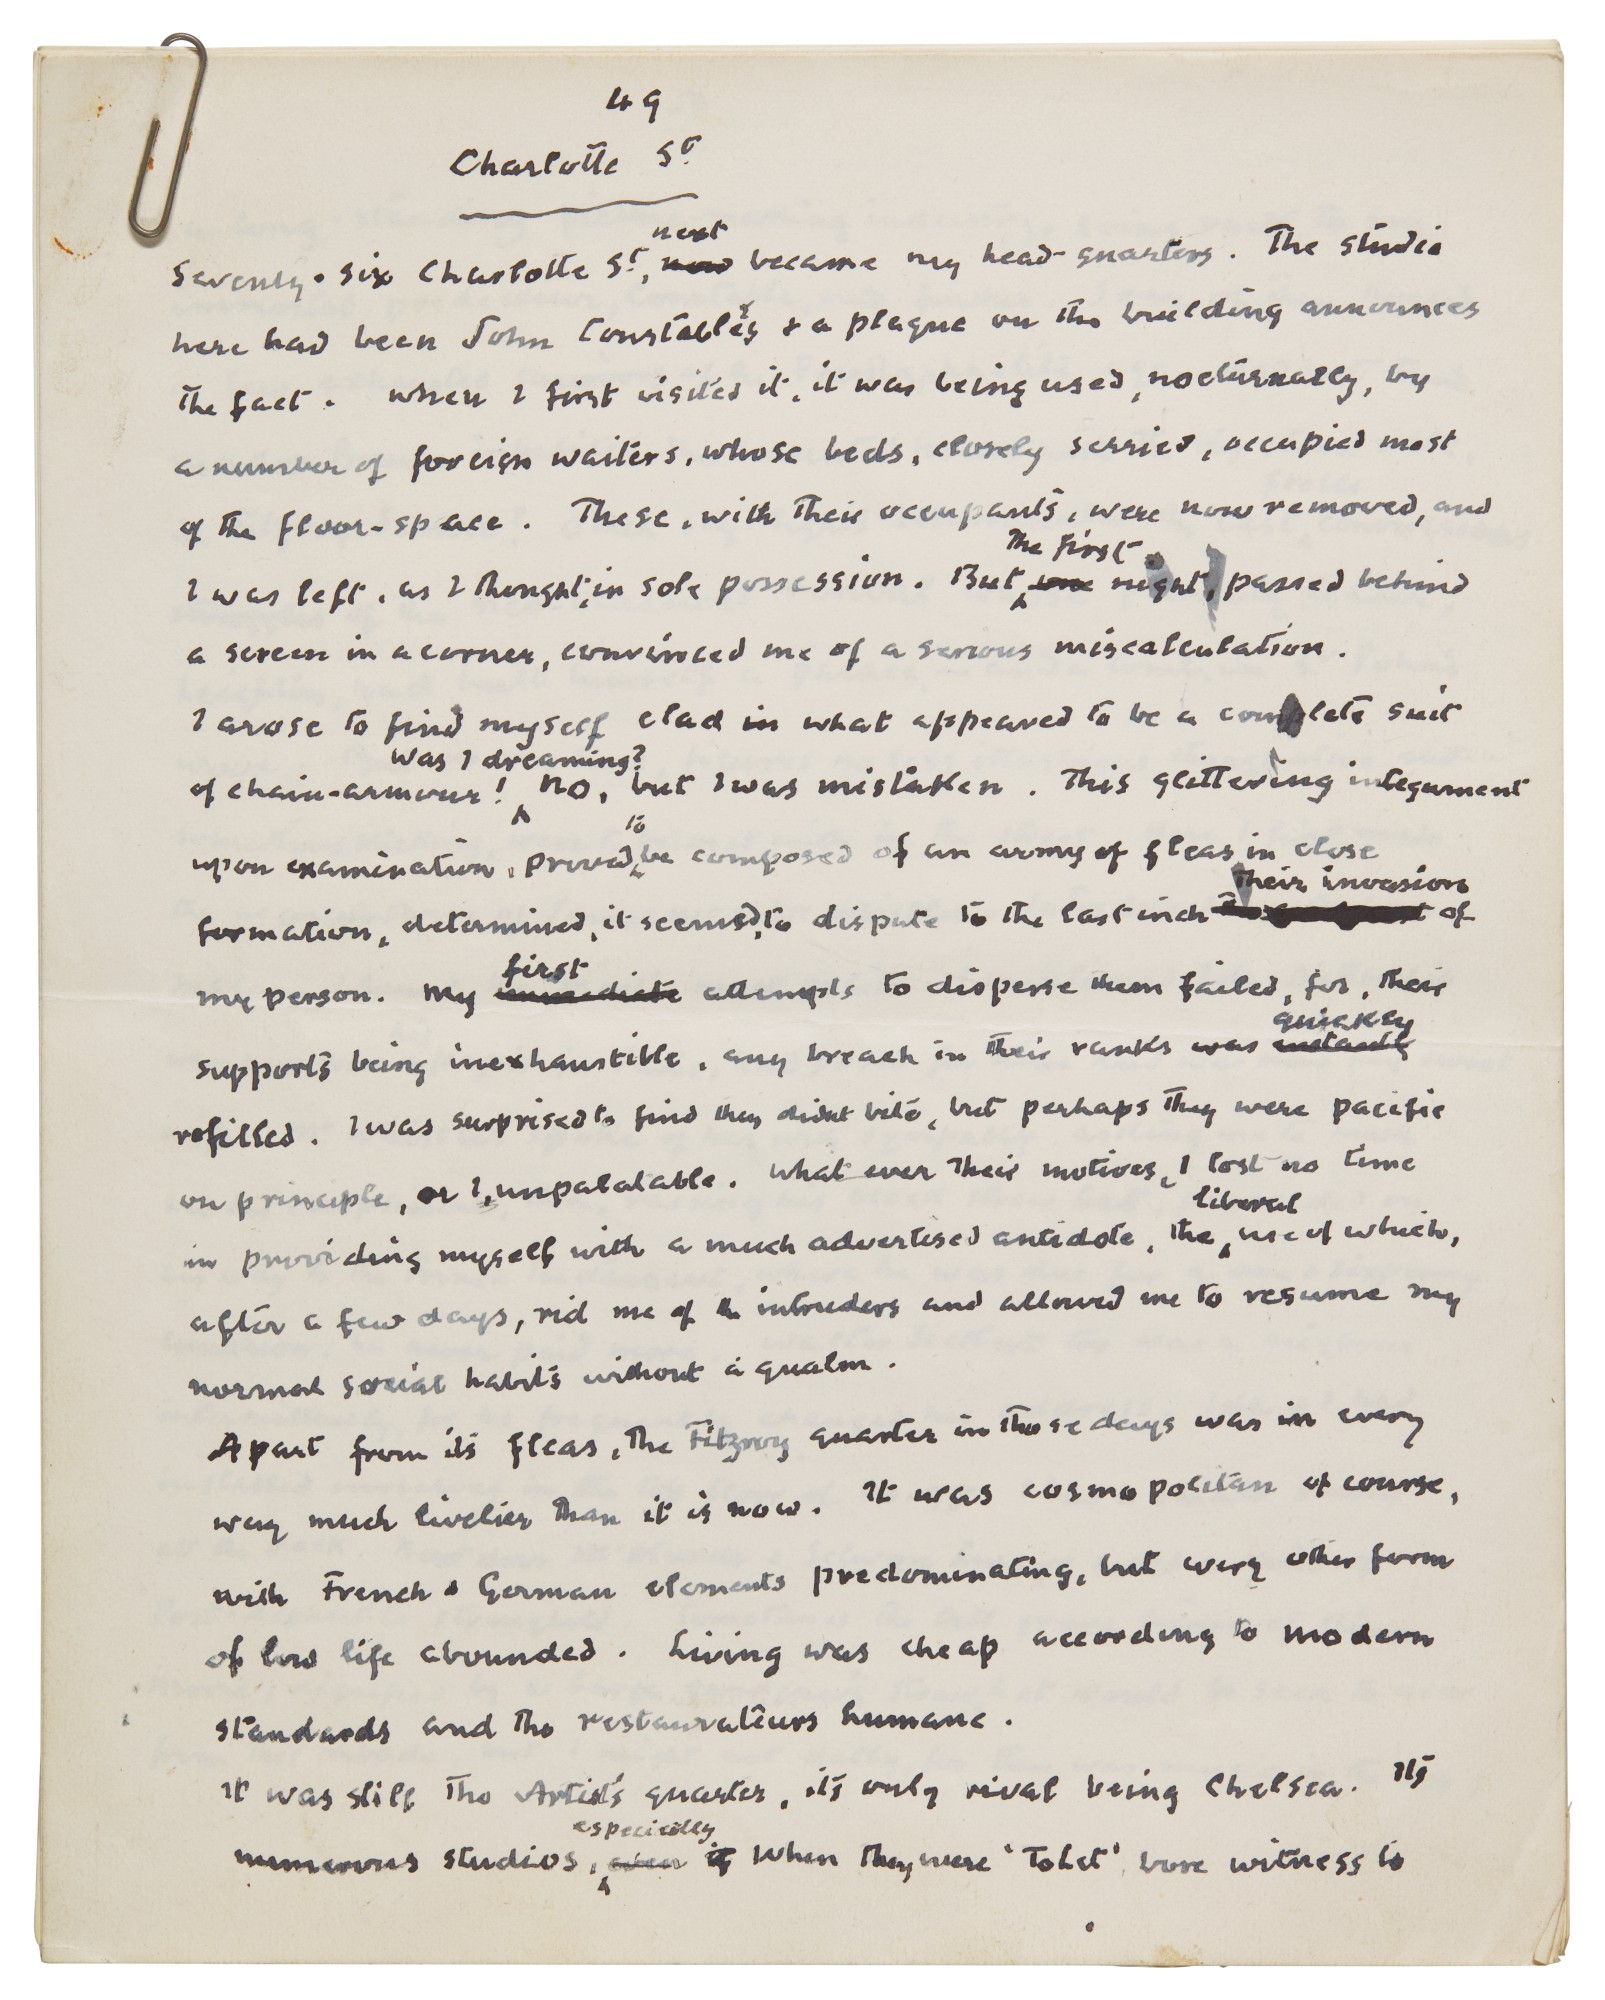 49
Charlotte St.
next
Seventy-six Charlotte St, now became my head-quarters. The studio
here had been John Constable's & a plaque on the building announces
the fact. When I first visited it, it was being used, nocturnally, by
a number of foreign waiters, whose beds, closely serried, occupied most
of the floor-space. These, with their occupants, were now removed, and
The first
I was left, as I thought, in sole possession. But one night, passed behind
a screen in a corner, convinced me of a serious miscalculation.
I arose to find myself clad in what appeared to be a complete suit
Was I dreaming?
of chain-armour! No, but I was mistaken. This glittering integument
to
upon examination, proved, be composed of an army of fleas in close
their invasion
formation, determined, it seemed, to dispute to the last inch of
first
my person. My immediate attempts to disperse them failed, for, their
quickly
supports being inexhaustible, any breach in their ranks was instantly
refilled. I was surprised to find they didnt bite, but perhaps they were pacific
on principle, or I, unpalatable. What ever their motives, I lost no time
liberal
in providing myself with a much advertised antidote, the use of which,
after a few days, rid me of the intruders and allowed me to resume my
normal social habits without a qualm.
Apart from its fleas, the Fitzroy quarter in those days was in every
way much livelier than it is now. It was cosmopolitan of course,
with French & German elements predominating, but every other form
of low life abounded. Living was cheap according to modern
standards and the restaurateurs humane.
It was still the Artists quarter, its only rival being Chelsea. Its
especially
numerous studios, even if when they were 'To Let' bore witness to